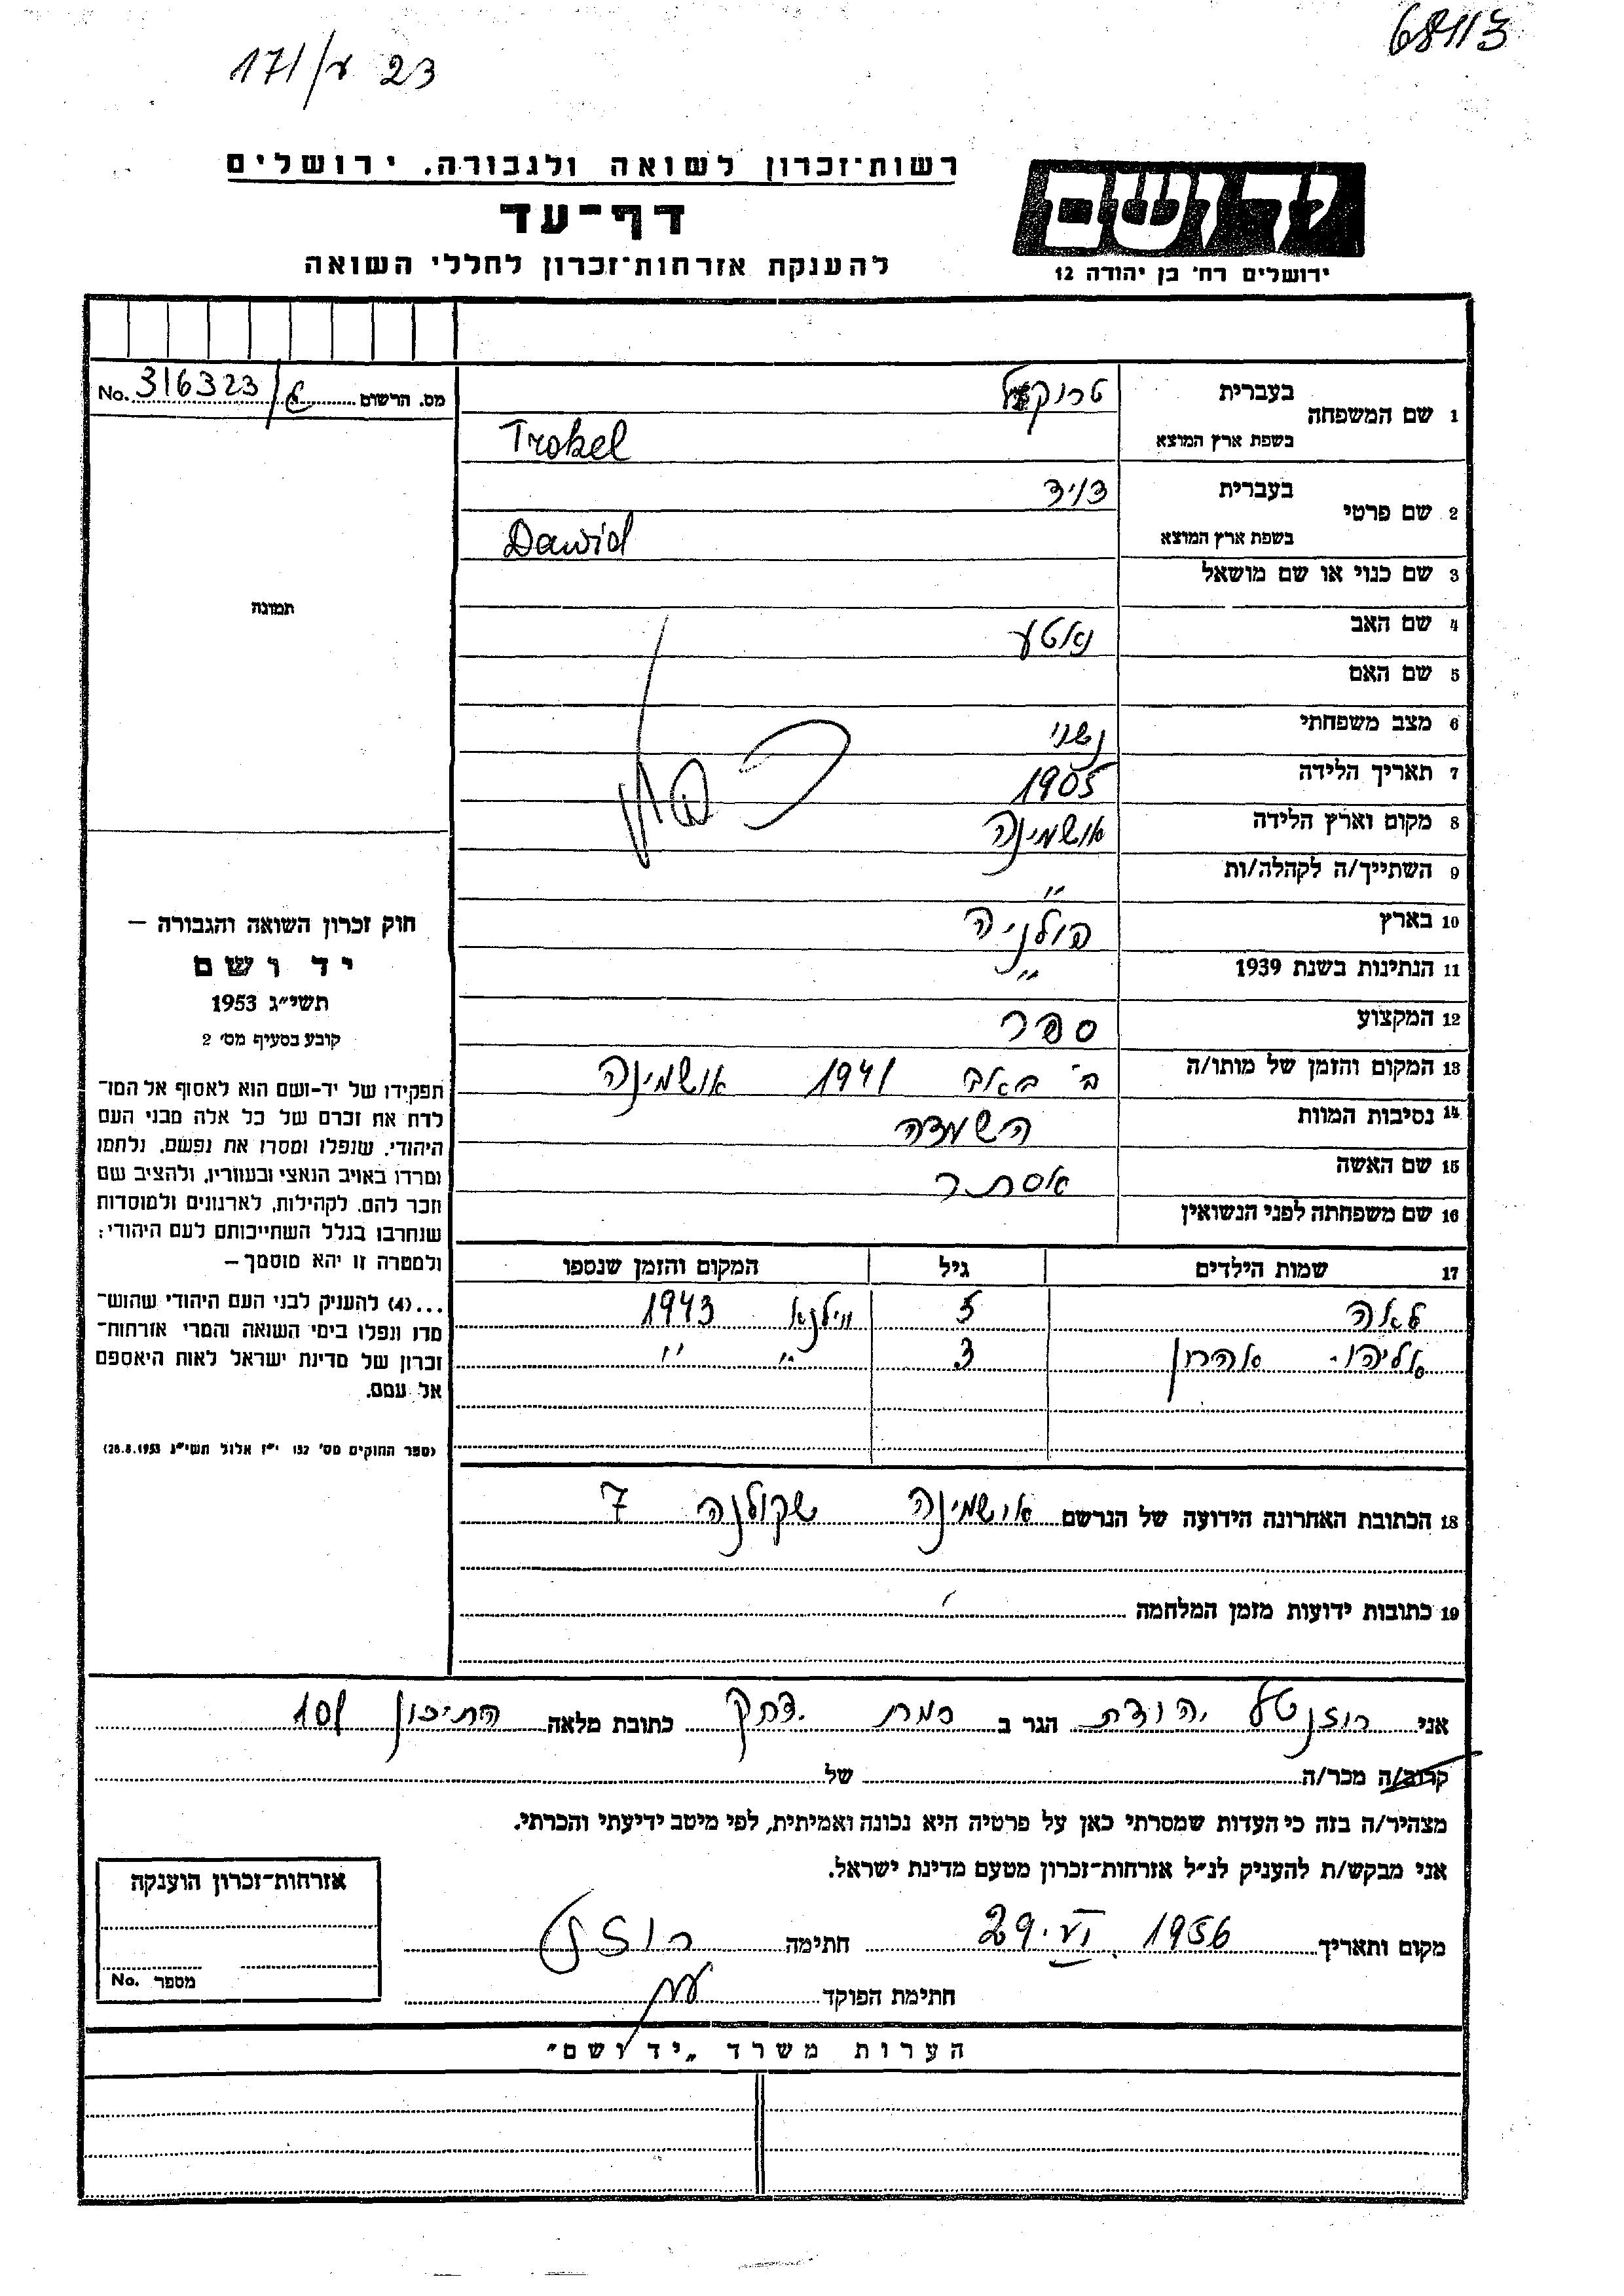 68113
171/ 23
רשות־זכרון לשואה ולגבורה. ירושלים
יד ושם
דף־עד
להענקת אזרחות־זכרון לחללי השואה
ירושלים רח׳ בן יהודה 12
מס. הרשום 316323 No.
1 שם המשפחה בעברית טרוקל
בשפת ארץ המוצא Trokel
2 שם פרטי בעברית דויד
בשפת ארץ המוצא Dawid
3 שם כנוי או שם מושאל
4 שם האב נאטע
5 שם האם
6 מצב משפחתי נשוי
7 תאריך הלידה 1905
8 מקום וארץ הלידה אושמינה
9 השתייך/ה לקהלה/ות ״
10 בארץ פולניה
11 הנתינות בשנת 1939 ״
12 המקצוע ספר
13 המקום והזמן של מותו/ה ב׳ באב 1941 אושמינה
14 נסיבות המוות השמדה
15 שם האשה אסתר
16 שם משפחתה לפני הנשואין
17 שמות הילדים גיל המקום והזמן שנספו
לאה 5 ווילנא 1943
אליהו. אהרון 3 ״ ״
18 הכתובת האחרונה הידועה של הנרשם אושמינה שקולנה 7
19 כתובות ידועות מזמן המלחמה
תמונה
חוק זכרון השואה והגבורה –
יד ושם
תשי״ג 1953
קובע בסעיף מס׳ 2
תפקידו של יד־ושם הוא לאסוף אל המו־
לדת את זכרם של כל אלה מבני העם
היהודי, שנפלו ומסרו את נפשם, נלחמו
ומרדו באויב הנאצי ובעוזריו, ולהציב שם
וזכר להם, לקהילות, לארגונים ולמוסדות
שנחרבו בגלל השתייכותם לעם היהודי;
ולמטרה זו יהא מוסמך –
...(4) להעניק לבני העם היהודי שהוש־
מדו ונפלו בימי השואה והמרי אזרחות־
זכרון של מדינת ישראל לאות היאספם
אל עמם.
(ספר החוקים מס׳ 132 י״ז אלול תשי״ג 28.8.1953)
אני רוזנטל יהודת הגר ב רמת יצחק כתובת מלאה התיכון 101
קרוב/ה מכר/ה של
מצהיר/ה בזה כי העדות שמסרתי כאן על פרטיה היא נכונה ואמיתית, לפי מיטב ידיעתי והכרתי.
אני מבקש/ת להעניק לנ״ל אזרחות־זכרון מטעם מדינת ישראל.
מקום ותאריך 29.VI.1956 חתימה
חתימת הפוקד
אזרחות־זכרון הוענקה
מספר No.
הערות משרד „יד ושם״